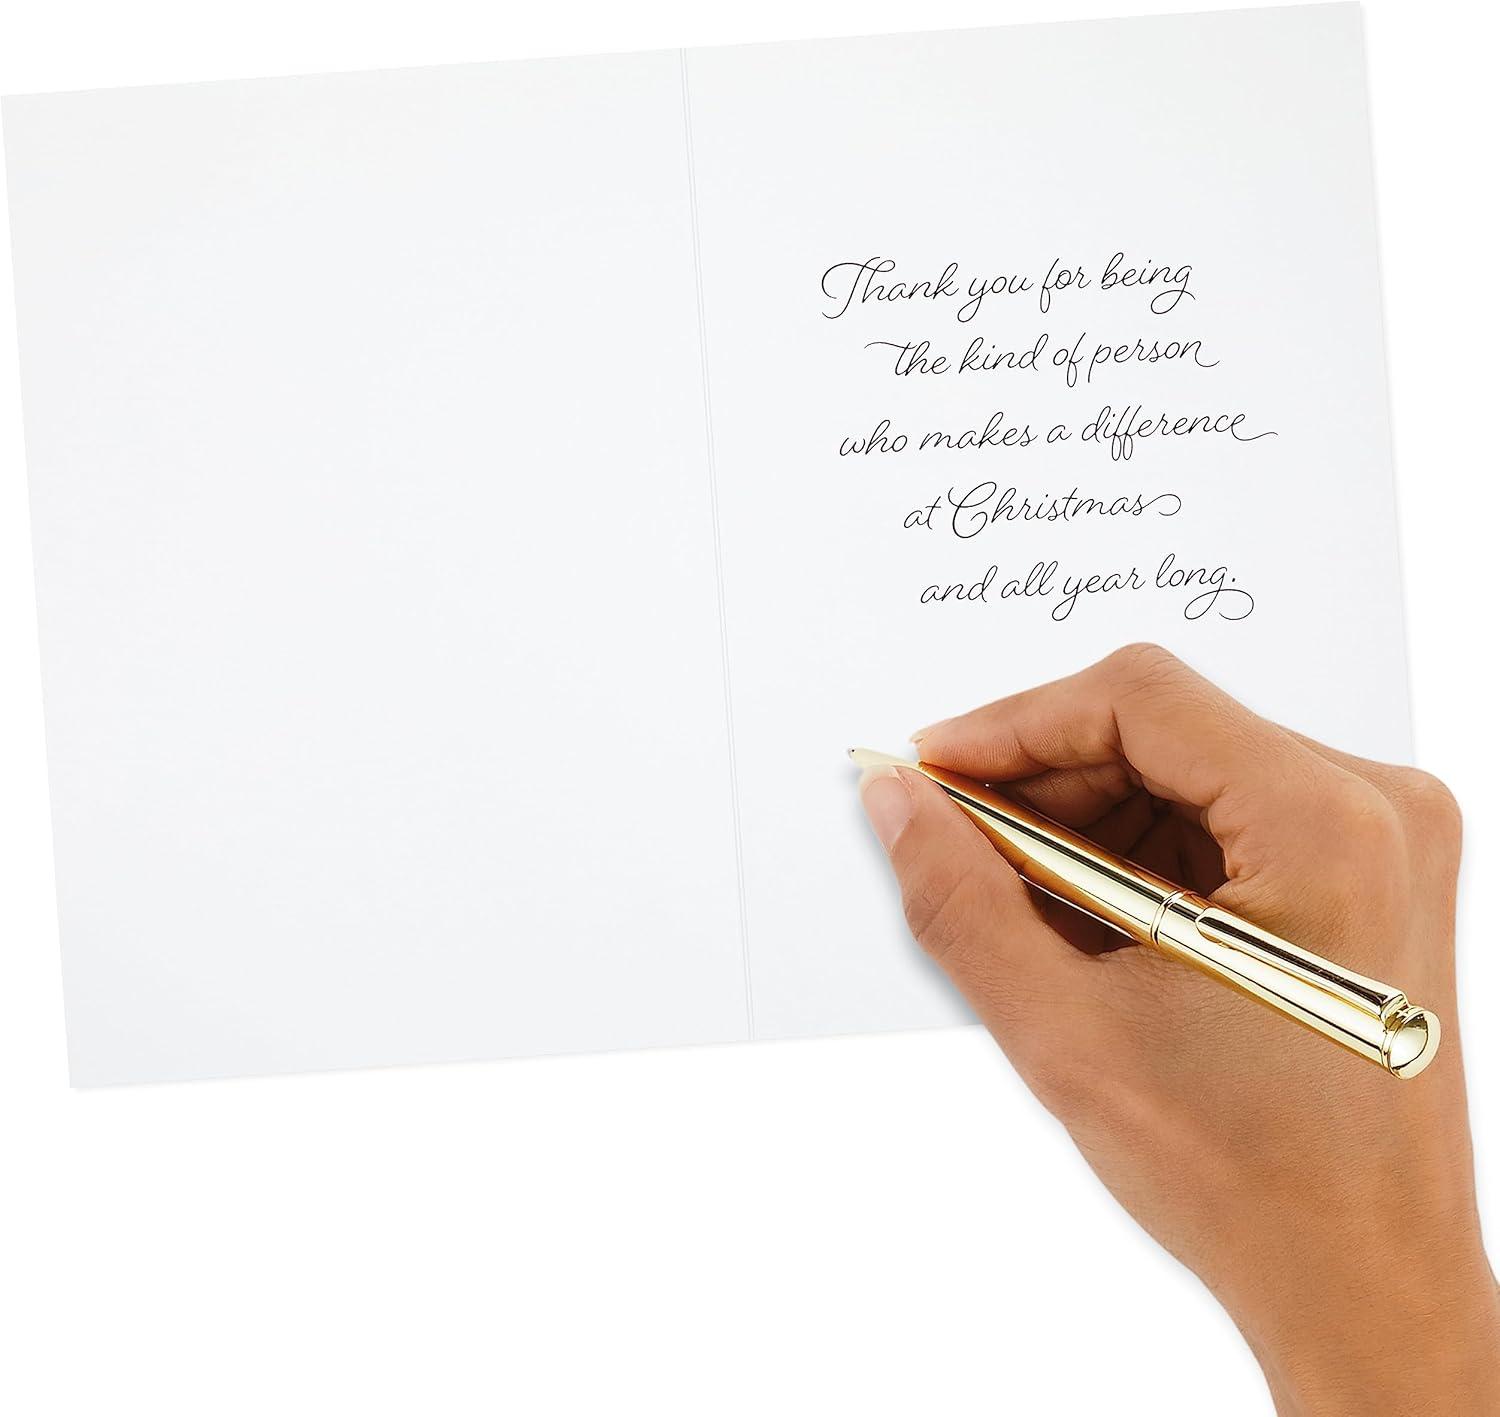 Thank you for being
the kind of person
who makes a difference
at Christmas
and all year long.